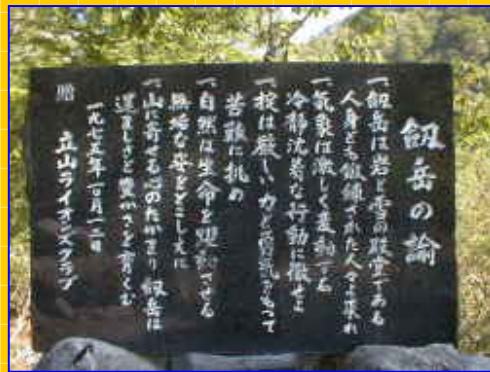 釼岳の諭
一、釼岳は岩と雪の殿堂である
人身とも鍛錬された人々よ来れ
一、気象は激しく変動する
冷静沈着な行動に徹せよ
一、掟は厳しい力と勇気をもって
苦難に挑め
一、自然は生命を躍動させる
無垢な姿をとこしえに
一、山に寄せる心のたかまり 釼岳は
逞ましさと豊かさを育くむ
一九七五年
贈 立山ライオンズクラブ